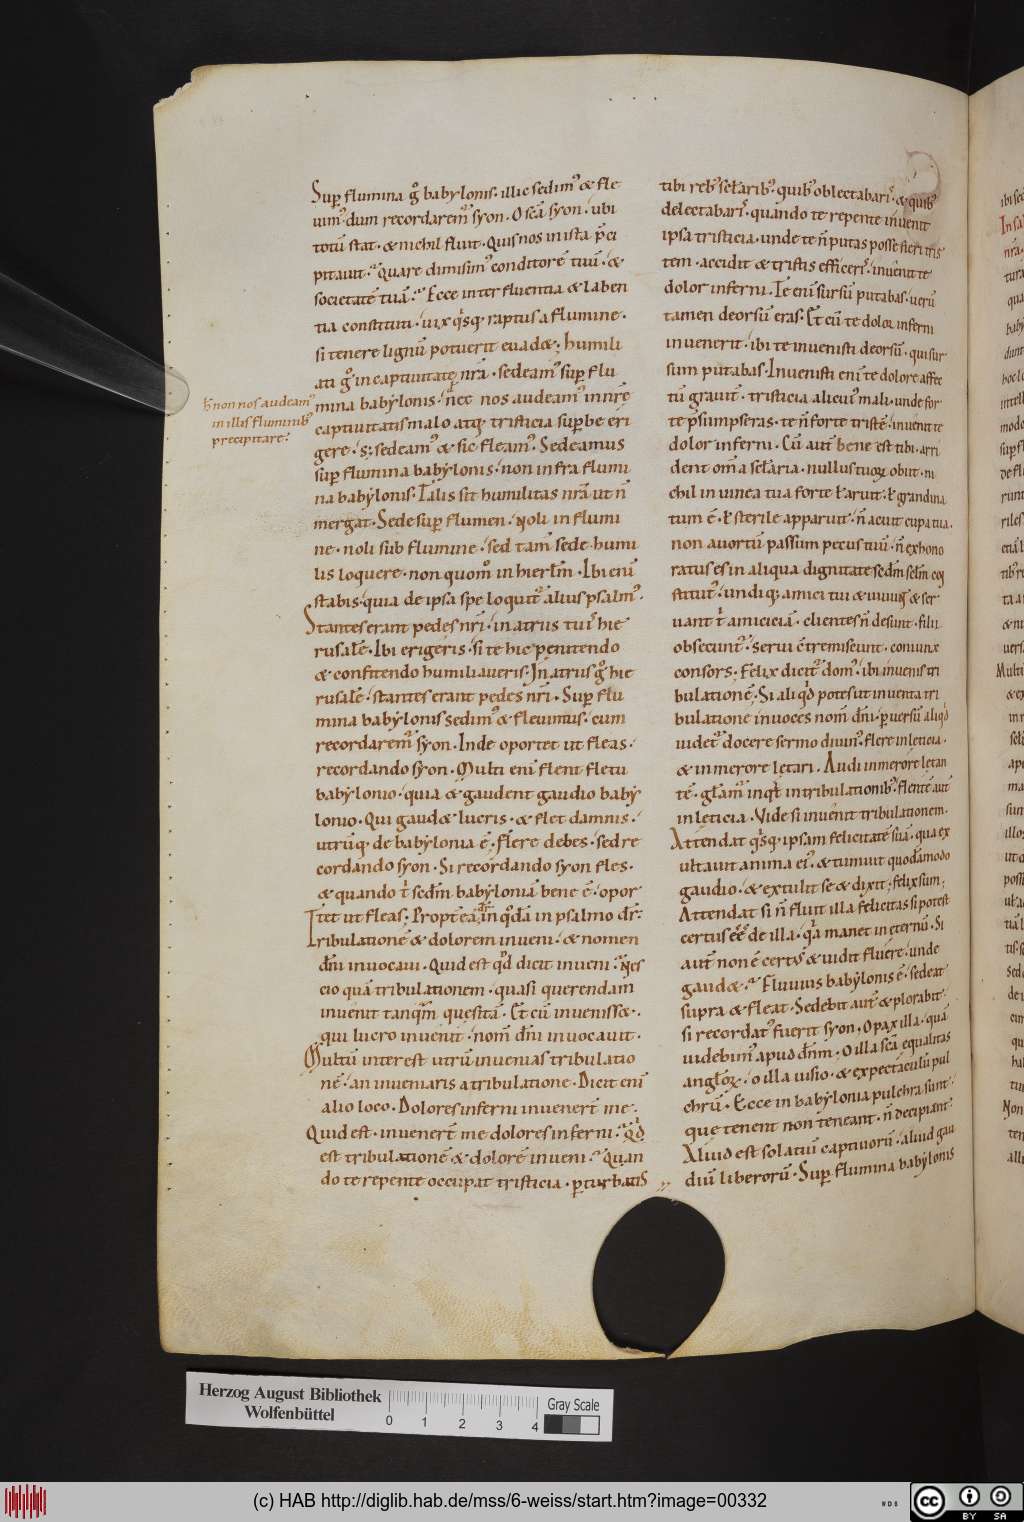 Sup flumina gͦ babylonis. illic sedimꝰ & fle
uimꝰ dum recordaremꝰ syon. O sc̄a syon. ubi
totū stat. & nichil fluit. Quis nos in ista p̄ci
pitauit? Quare dimisimꝰ conditorē tuū. &
societatē tuā? Ecce inter fluentia & laben
tia constituti. uix q̇sq; raptus a flumine.
si tenere lignū potuerit euad&; humili
ati gͦ in captiuitate nrā. sedeamꝰ sup flu
mina babylonis. nec nos audeamꝰ in nrē
captiuitatis malo atq; tristicia supbe eri
gere. s; sedeamꝰ & sic fleamꝰ. Sedeamus
sup flumina babylonis. non infra flumi
na babylonis. Talis sit humilitas nrā ut n̄
mergat. Sede sup flumen. Noli in flumi
ne. noli sub flumine. sed tam̄ sede humi
lis loquere. non quomͦ in hierlm̄. Ibi eni
stabis. quia de ipsa spe loquitꝰ alius psalmꝰ.
Stantes erant pedes nrī. in atriis tuis hie
rusalē. Ibi erigeris. si te hic penitendo
& confitendo humiliaueris. In atriis gͦ hie
rusalē. stantes erant pedes nrī. Sup flu
mina babylonis sedimꝰ & fleuimus. cum
recordaremꝰ syon. Inde oportet ut fleas.
recordando syon. Multi eni flent fletu
babylonio. quia & gaudent gaudio baby
lonio. Qui gaud& lucris. & flet damnis.
utrūq; de babylonia ē. Flere debes. sed re
cordando syon. Si recordando syon fles.
& quando t̄ sedm̄ babyloniā bene ē. opor
tet ut fleas; Propt̄ea in q̇dā in psalmo dr̄.
Tribulationē & dolorem inueni. & nomen
dn̄i inuocaui. Quid est qd̄ dicit inueni? Nes
cio quā tribulationem. quasi querendam
inuenit tanq̄m quesitā. Et cū inueniss&.
qui lucro inuenit. nom̄ dn̄i inuocauit.
Multū interest utrū inuenias tribulatio
nē. an inueniaris a tribulatione. Dicit eni
alio loco. Dolores inferni inuenert̄ me.
Quid est. inuenert̄ me dolores inferni? Qd̄
est tribulationē & dolorē inueni? Quan
do te repente occupat tristicia. pturbatis
ł non nos audeamꝰ
in illis fluminibꝰ
precipitare.
tibi rebꝰ sełaribꝰ. quibꝰ oblectabarꝭ. & quibꝰ
delectabarꝭ. quando te repente inuenit
ipsa tristicia. unde te n̄ putas posse fieri tris
tem. accidit & tristis efficerꝭ. inuenit te
dolor inferni. Te eni sursū putabas. uerū
tamen deorsū eras. Et cū te dolor inferni
inuenerit. ibi te inuenisti deorsū. qui sur
sum putabas. Inuenisti eni te dolore affec
tū grauit. tristicia alicuiꝰ mali. unde for
te p̄sumpseras. te n̄ forte tristē. inuenit te
dolor inferni. Cū aut̄ bene est tibi. arri
dent om̄a sełaria. nullus tuoꝝ obiit. ni
chil in uinea tua forte ł aruit. ł grandina
tum ē. ł sterile apparuit. n̄ acuit cupa tua.
non auortū passum pecus tuū. n̄ exhono
ratus es in aliqua dignitate sedm̄ sełm
stitutꝰ. undiq; amici tui & uiuuꝭ & ser
uant t̄ amiciciā. clientes n̄ desunt. filii
obsecuntꝰ. serui c̄tremiscunt. coniunx
consors. Felix dicitꝰ domꝰ. ibi inuenis tri
bulationē. Si aliqd̄ potes ut inuenta tri
bulatione inuoces nom̄ dn̄i. puersū aliqd̄
uidetꝰ docere sermo diuinꝰ. flere in leticia.
& in merore lętari. Audi in merore lętan
tē. gl̄amꝰ inqt̄ in tribulationibꝰ. flentē aut̄
in leticia. Vide si inuenit tribulationem.
Attendat q̇sq; ipsam felicitatē suā. qua ex
ultauit anima eiꝰ. & tumuit quodāmodo
gaudio. & extulit se & dixit; felix sum;
Attendat si n̄ fluit illa felicitas si potest
certus eē de illa. q̄a manet in ęternū. Si
aut̄ non ē certꝰ & uidit fluere. unde
gaud&? Fluuius babylonis ē. sedeat
supra & fleat. Sedebit aut̄ & plorabit.
si recordatꝰ fuerit syon. O pax illa. quā
uidebimꝰ apud dm̄. O illa scā equalitas
angłoꝝ. o illa uisio. & expectaculū pul
chrū. Ecce in babylonia pulchra sunt.
que tenent non teneant. n̄ decipiant.
Aliud est solatiū captiuorū. aliud gau
diū liberorū. Sup flumina babylonis
Herzog August Bibliothek
Wolfenbüttel
0 1 2 3 4
Gray Scale
(c) HAB http://diglib.hab.de/mss/6-weiss/start.htm?image=00332
WDB
cc
BY SA